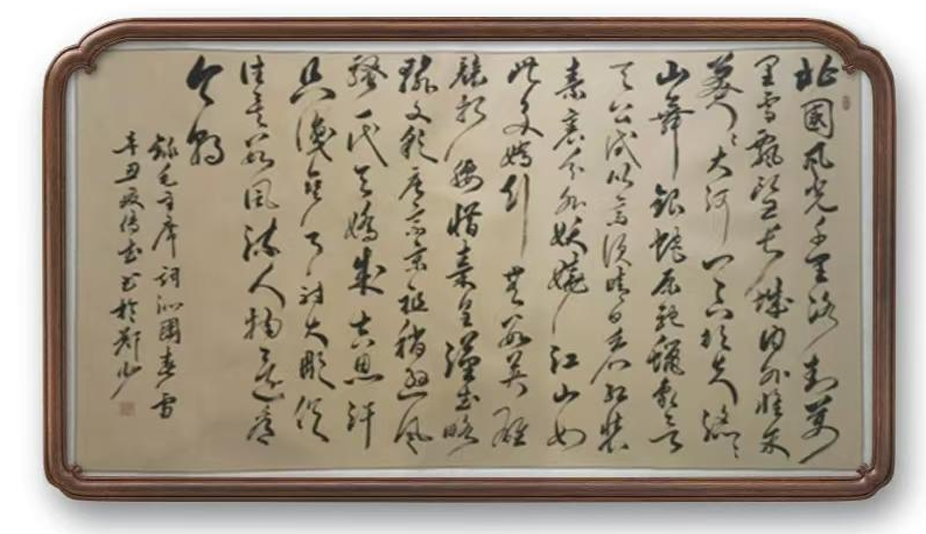 北國風光千里冰封萬
里雪飄望长城内外惟余
莽々大河上下顿失滔々
山舞銀蛇原驰蠟象欲与
天公试比高须晴日看红装
素裹分外妖娆江山如
此多嬌引无数英雄
競折腰惜秦皇漢武略
输文彩唐宗宋祖稍逊风
骚一代天骄成吉思汗
只识弯弓射大雕俱
往矣数風流人物还看
今朝
錄毛主席詞沁園春雪
辛丑夏传志书於郑州